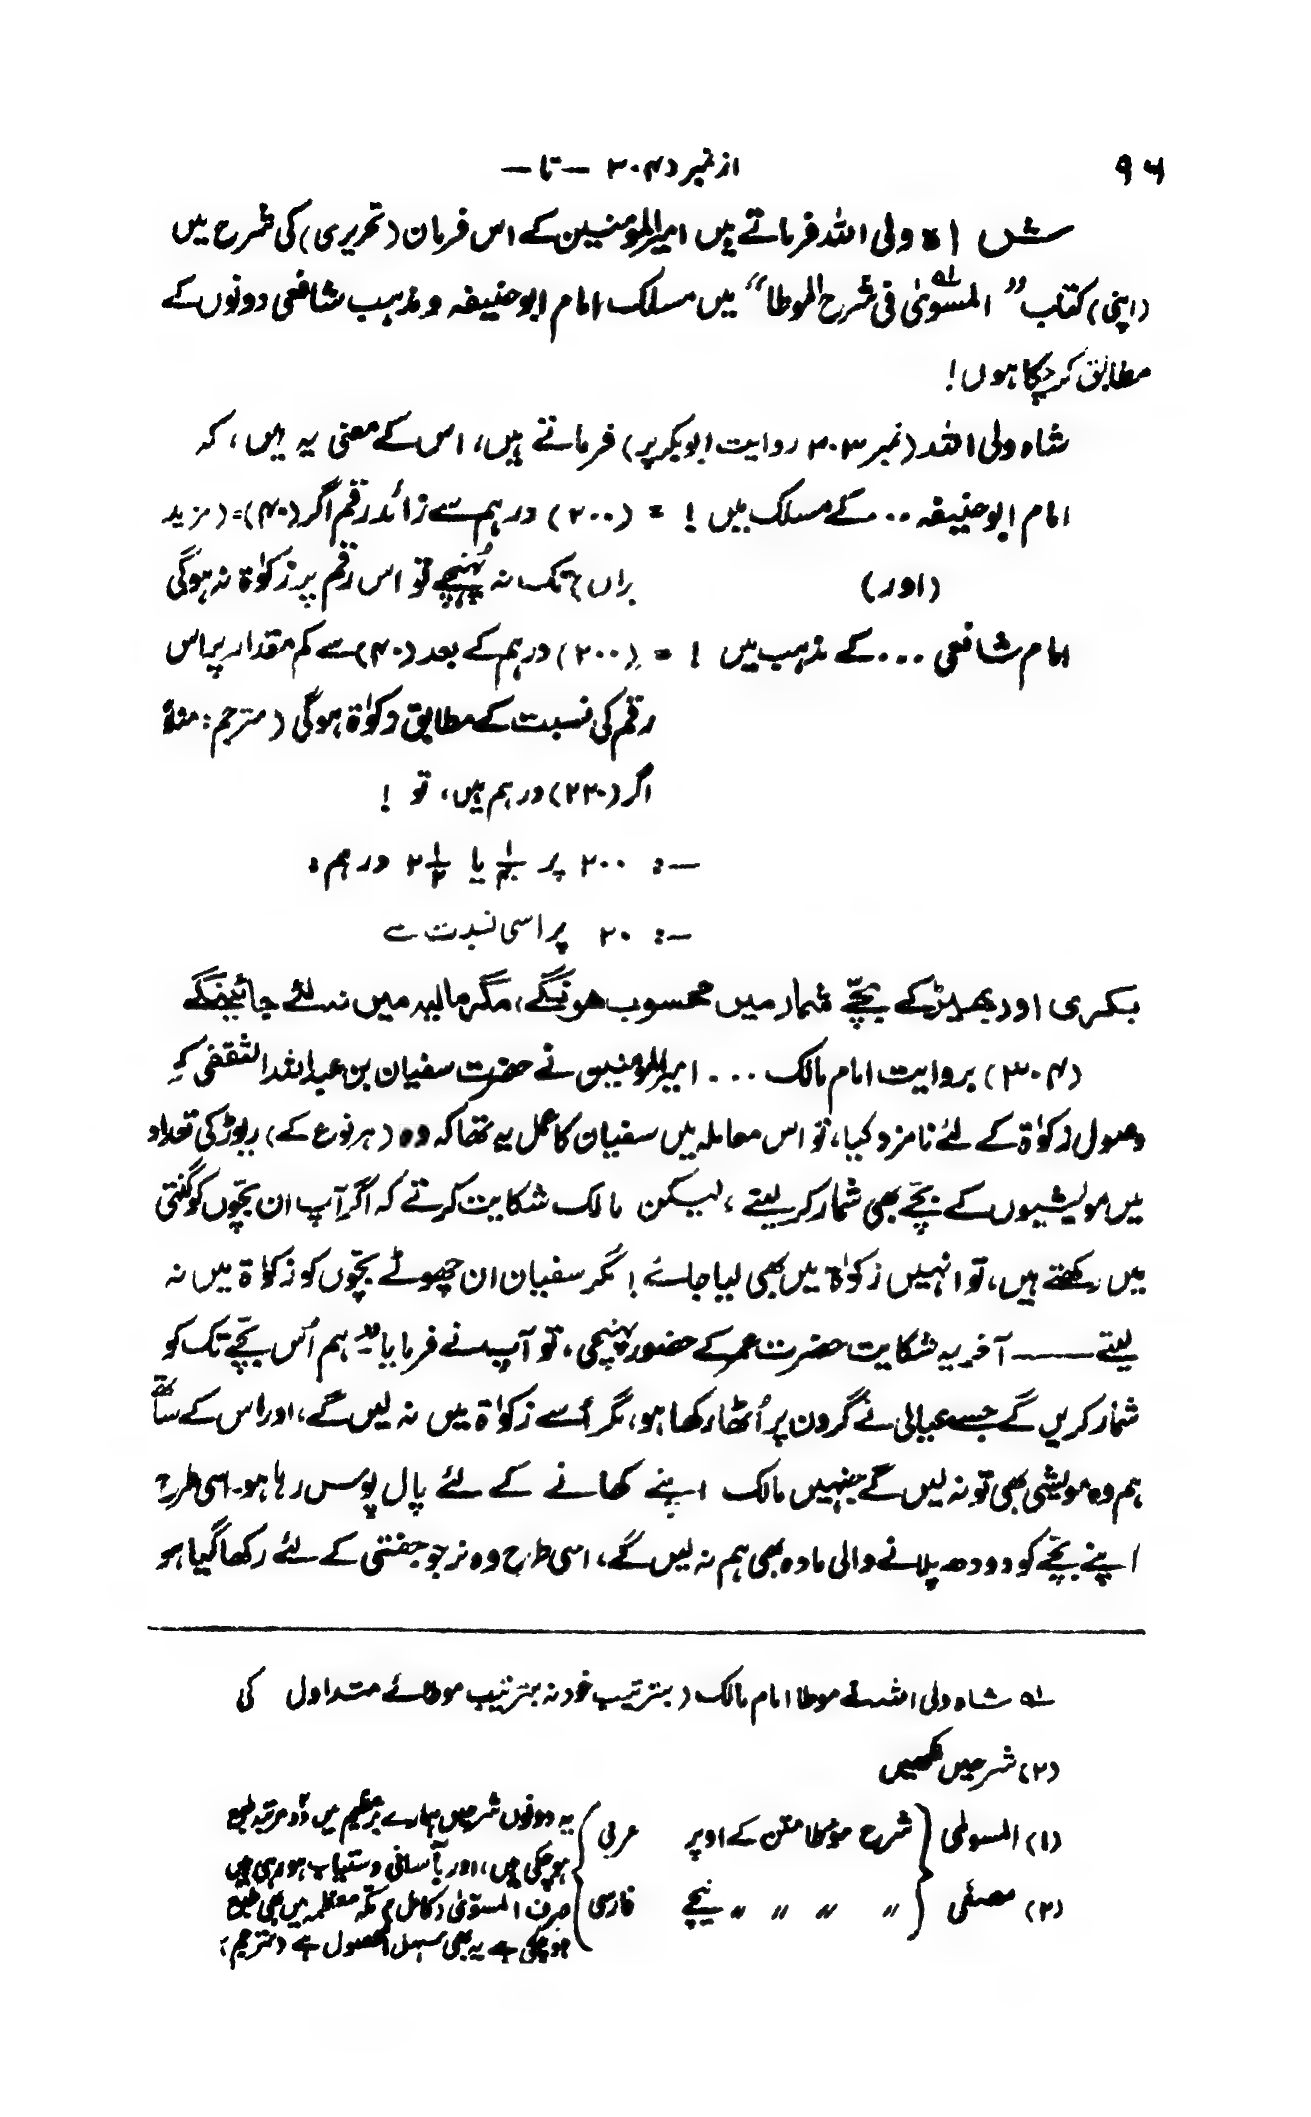 ۹۶
از نمبر ۳۰۴ — تا —
شاہ ولی اللہ فرماتے ہیں امیرالمؤمنین کے اس فرمان (تحریری) کی شرح میں
(اپنی) کتاب ”المسوّیٰ لہ فی شرح الموطا“ میں مسلک امام ابو حنیفہ و مذہب شافعی دونوں کے
مطابق کر چکا ہوں!
شاہ ولی اللہ (نمبر ۳۰۳ روایت ابوبکر پر) فرماتے ہیں، اس کے معنی یہ ہیں، کہ
امام ابو حنیفہ .. کے مسلک میں ! = (۲۰۰) درہم سے زائد رقم اگر (۴۰) = (مزید
براں) تک نہ پہنچے تو اس رقم پر زکوٰۃ نہ ہوگی
(اور)
امام شافعی ... کے مذہب میں ! = (۲۰۰) درہم کے بعد (۴۰) سے کم مقدار پر اس
رقم کی نسبت کے مطابق زکوٰۃ ہوگی (مترجم: مثلاً
اگر (۲۲۰) درہم ہیں، تو !
—: ۲۰۰ پر ۱/۴۰ یا ۲ ۱/۲ درہم:
—: ۲۰ پر اسی نسبت سے
بکری اور بھیڑ کے بچّے شمار میں محسوب ہونگے، مگر مالیہ میں نہ لئے جائینگے
(۳۰۴) بروایت امام مالک ... امیرالمؤمنین نے حضرت سفیان بن عبداللہ الثقفی کو
وصول زکوٰۃ کے لئے نامزد کیا، تو اس معاملہ میں سفیان کا عمل یہ تھا کہ وہ (ہر نوع کے) ریوڑ کی تعداد
میں مویشیوں کے بچّے بھی شمار کر لیتے، لیکن مالک شکایت کرتے کہ اگر آپ ان بچّوں کو گنتی
میں رکھتے ہیں، تو انہیں زکوٰۃ میں بھی لیا جائے! مگر سفیان ان چھوٹے بچّوں کو زکوٰۃ میں نہ
لیتے —— آخر یہ شکایت حضرت عمر کے حضور پہنچی، تو آپ نے فرمایا ”ہم اُس بچّے تک کو
شمار کریں گے جسے عیالی نے گردن پر اُٹھا رکھا ہو، مگر اُسے زکوٰۃ میں نہ لیں گے، اور اس کے ساتھ
ہم وہ مویشی بھی تو نہ لیں گے جنہیں مالک اپنے کھانے کے لئے پال پوس رہا ہو۔ اسی طرح
اپنے بچّے کو دودھ پلانے والی مادہ بھی ہم نہ لیں گے، اسی طرح وہ نر جو جفتی کے لئے رکھا گیا ہو
لہ شاہ ولی اللہ نے موطا امام مالک (بترتیب خود نہ بترتیب موطائے متداول کی
(۲) شرحیں لکھیں
(۱) المسویٰ } شرح مؤطا متن کے اوپر عربی
(۲) مصفّی } 〃 〃 〃 〃 نیچے فارسی
یہ دونوں شرحیں ہمارے برعظیم میں دو مرتبہ طبع
ہو چکی ہیں، اور بآسانی دستیاب ہو رہی ہیں
صرف المسوّیٰ (کامل) مکّہ معظمہ میں بھی طبع
ہو چکی ہے یہ بھی سہل الحصول ہے (مترجم)